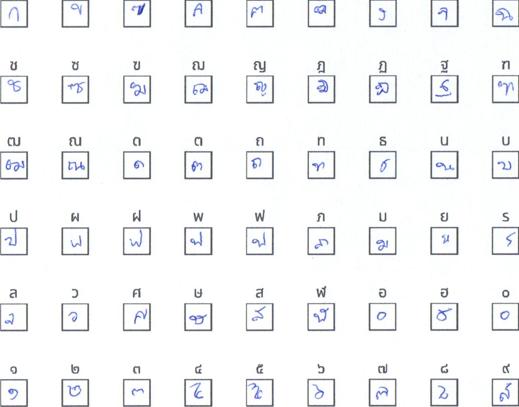 ก ข ค ฅ ง จ ฉ
ช ซ ฌ ญ ฎ ฏ ฐ ฑ
ช ซ ฌ ญ ฎ ฏ ฐ ฑ
ฒ ณ ด ต ถ ท ธ น บ
ฒ ณ ด ต ถ ท ธ น บ
ป ผ ฝ พ ฟ ภ ม ย ร
ป ผ ฝ พ ฟ ภ ม ย ร
ล ว ศ ษ ส ฬ อ ฮ ๐
ล ว ศ ษ ส ฬ อ ฮ ๐
๑ ๒ ๓ ๔ ๕ ๖ ๗ ๘ ๙
๑ ๒ ๓ ๔ ๕ ๖ ๗ ๘ ๙